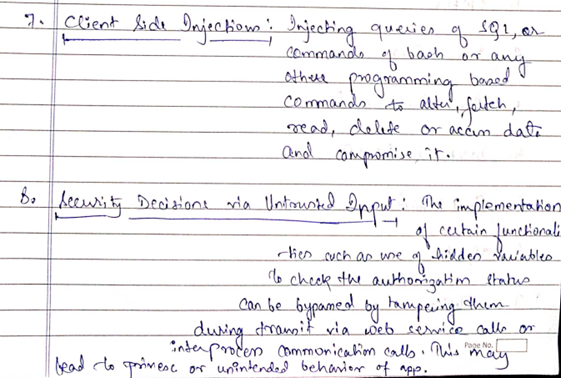 7. Client Side Injections: Injecting queries of SQL, or
commands of bash or any
other programming based
commands to alter, fetch,
read, delete or access data
and compromise it.
8. Security Decisions via Untrusted Input: The implementation
of certain functionali
-ties such as use of hidden variables
to check the authorization status
can be bypassed by tampering them
during transit via web service calls or
interprocess communication calls. This may
Page No.
lead to or unintended behavior of app.